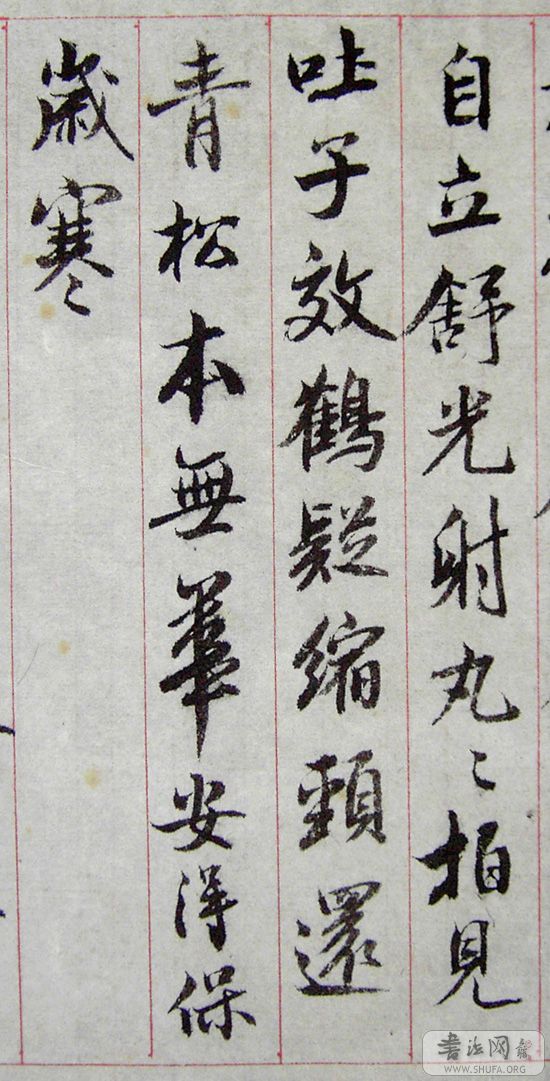 自立舒光射丸〻柏見
吐子效鶴疑縮頸還
青松本無華安得保
歲寒
书法网
WWW.SHUFA.ORG